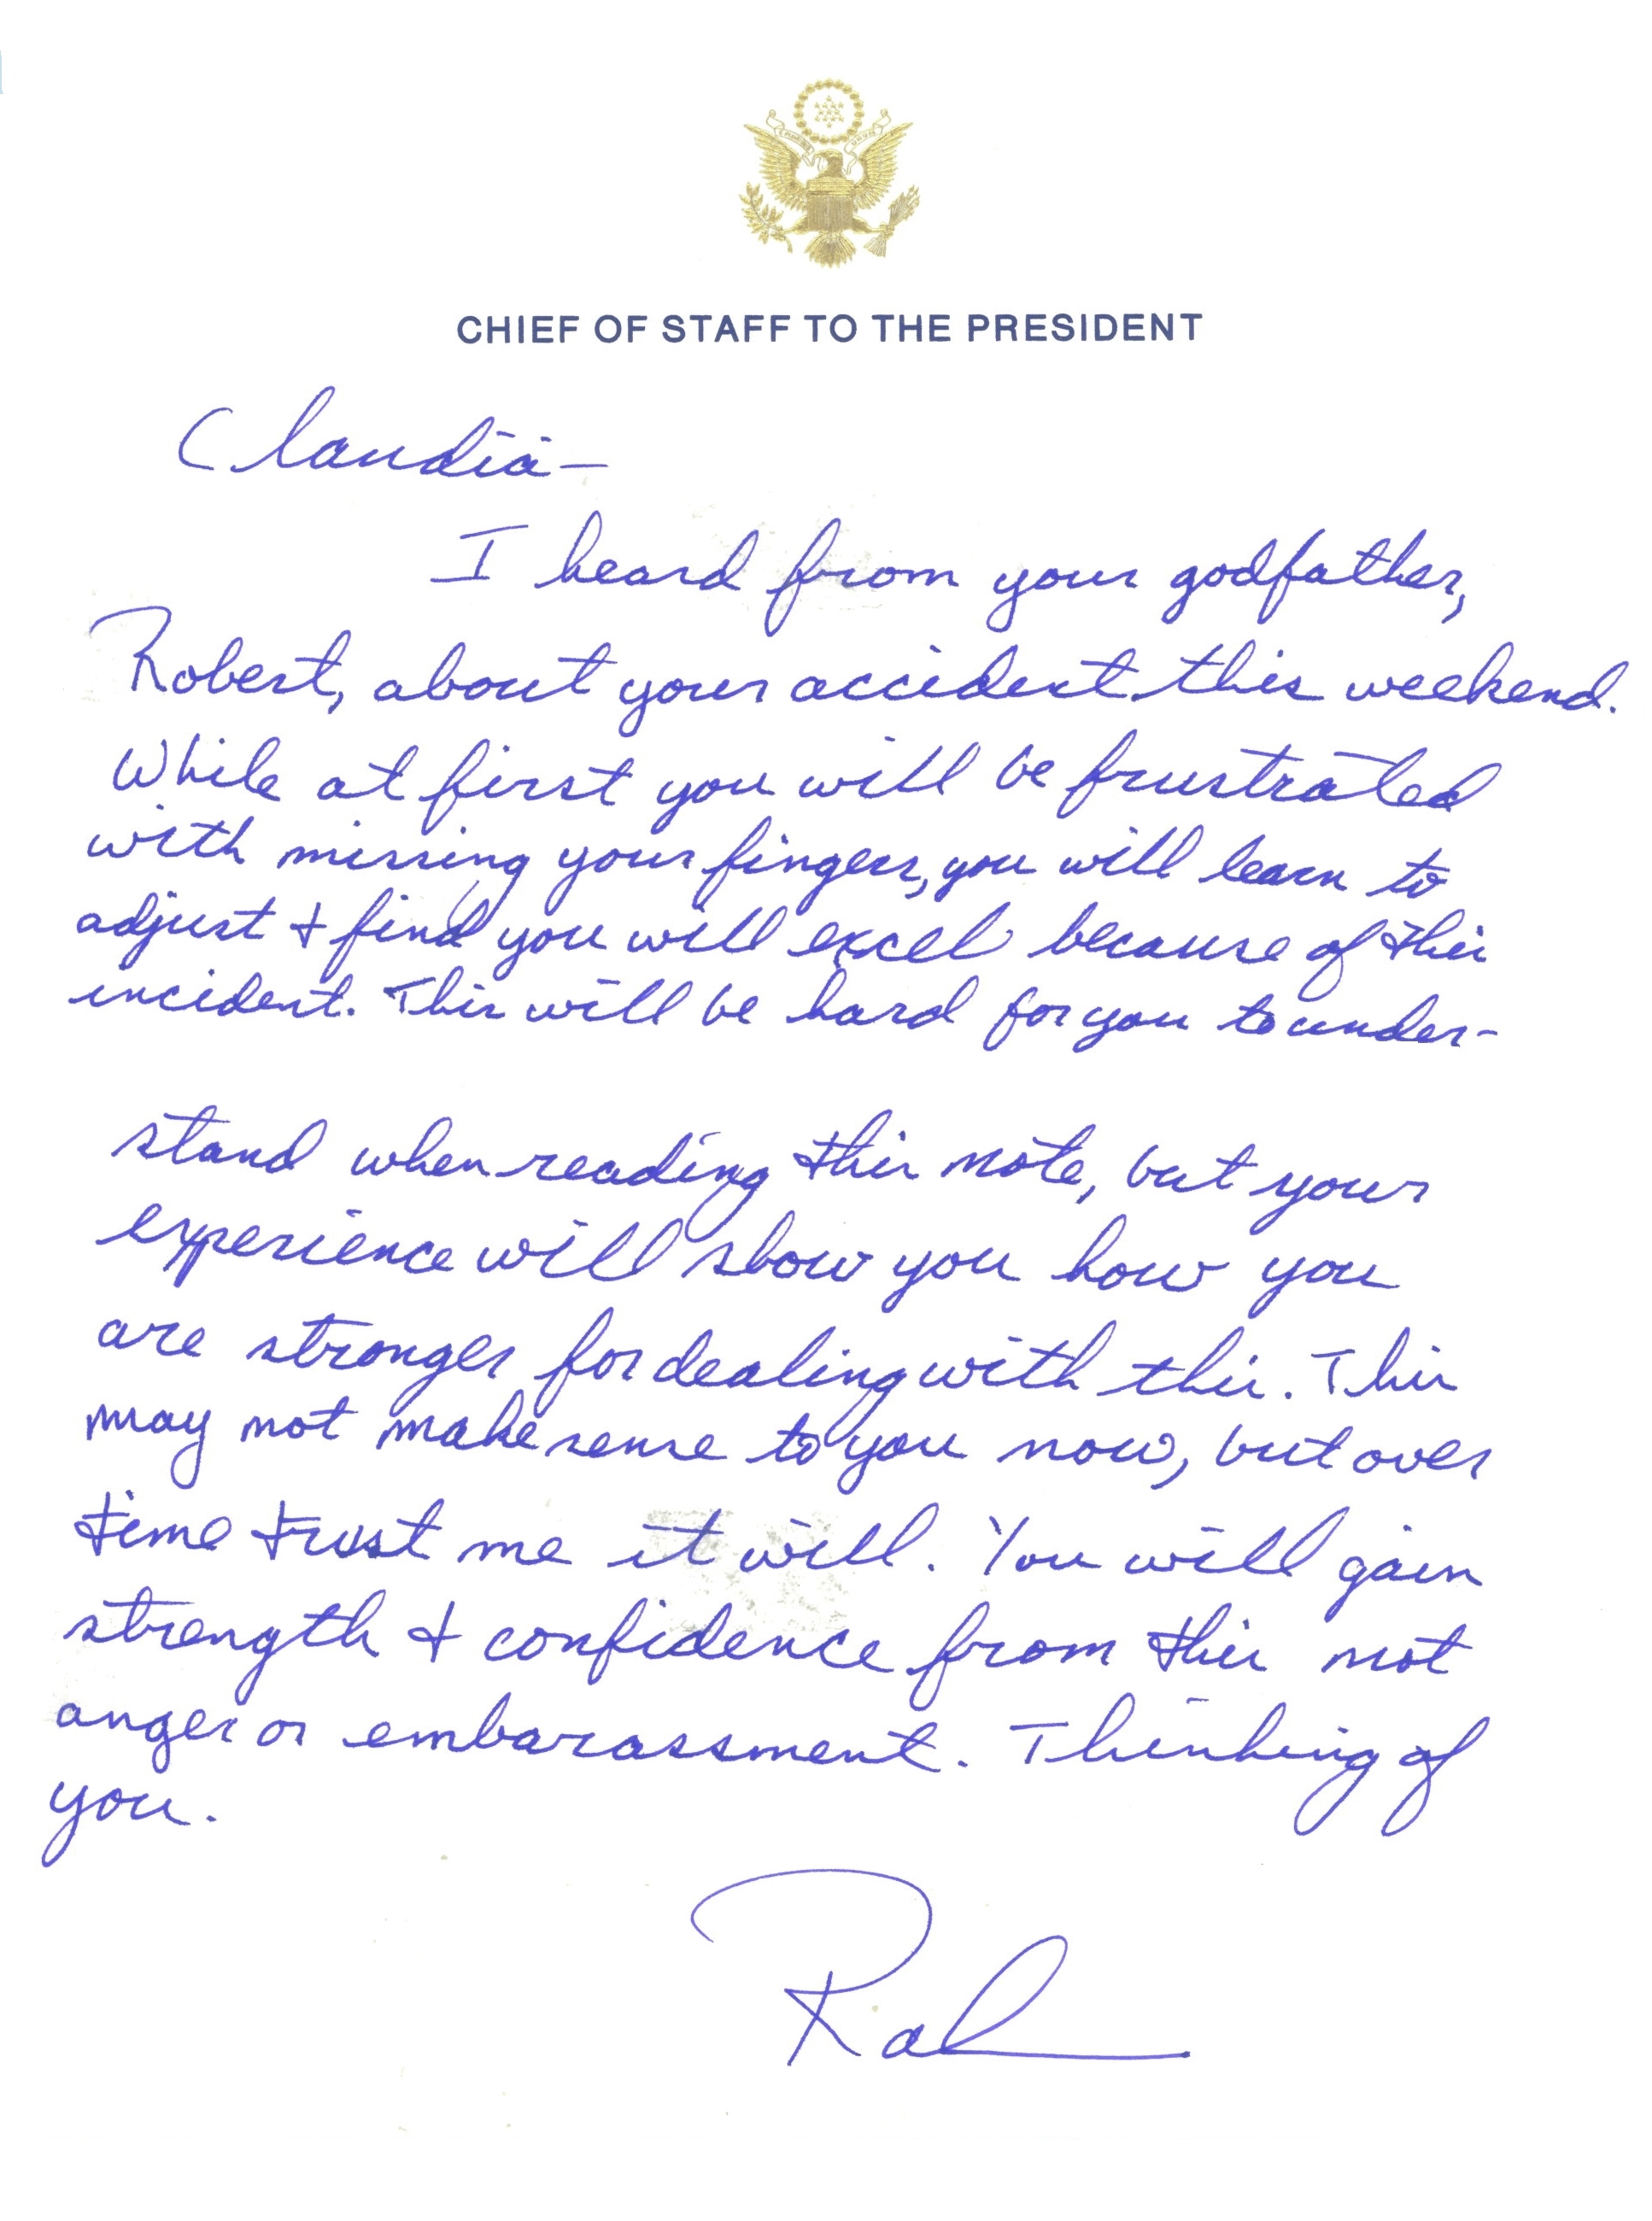 CHIEF OF STAFF TO THE PRESIDENT
Claudia—
I heard from your godfather,
Robert, about your accident this weekend.
While at first you will be frustrated
with missing your fingers, you will learn to
adjust & find you will excel because of this
incident. This will be hard for you to under-
stand when reading this note, but your
experience will show you how you
are stronger for dealing with this. This
may not make sense to you now, but over
time trust me it will. You will gain
strength & confidence from this not
anger or embarassment. Thinking of
you.